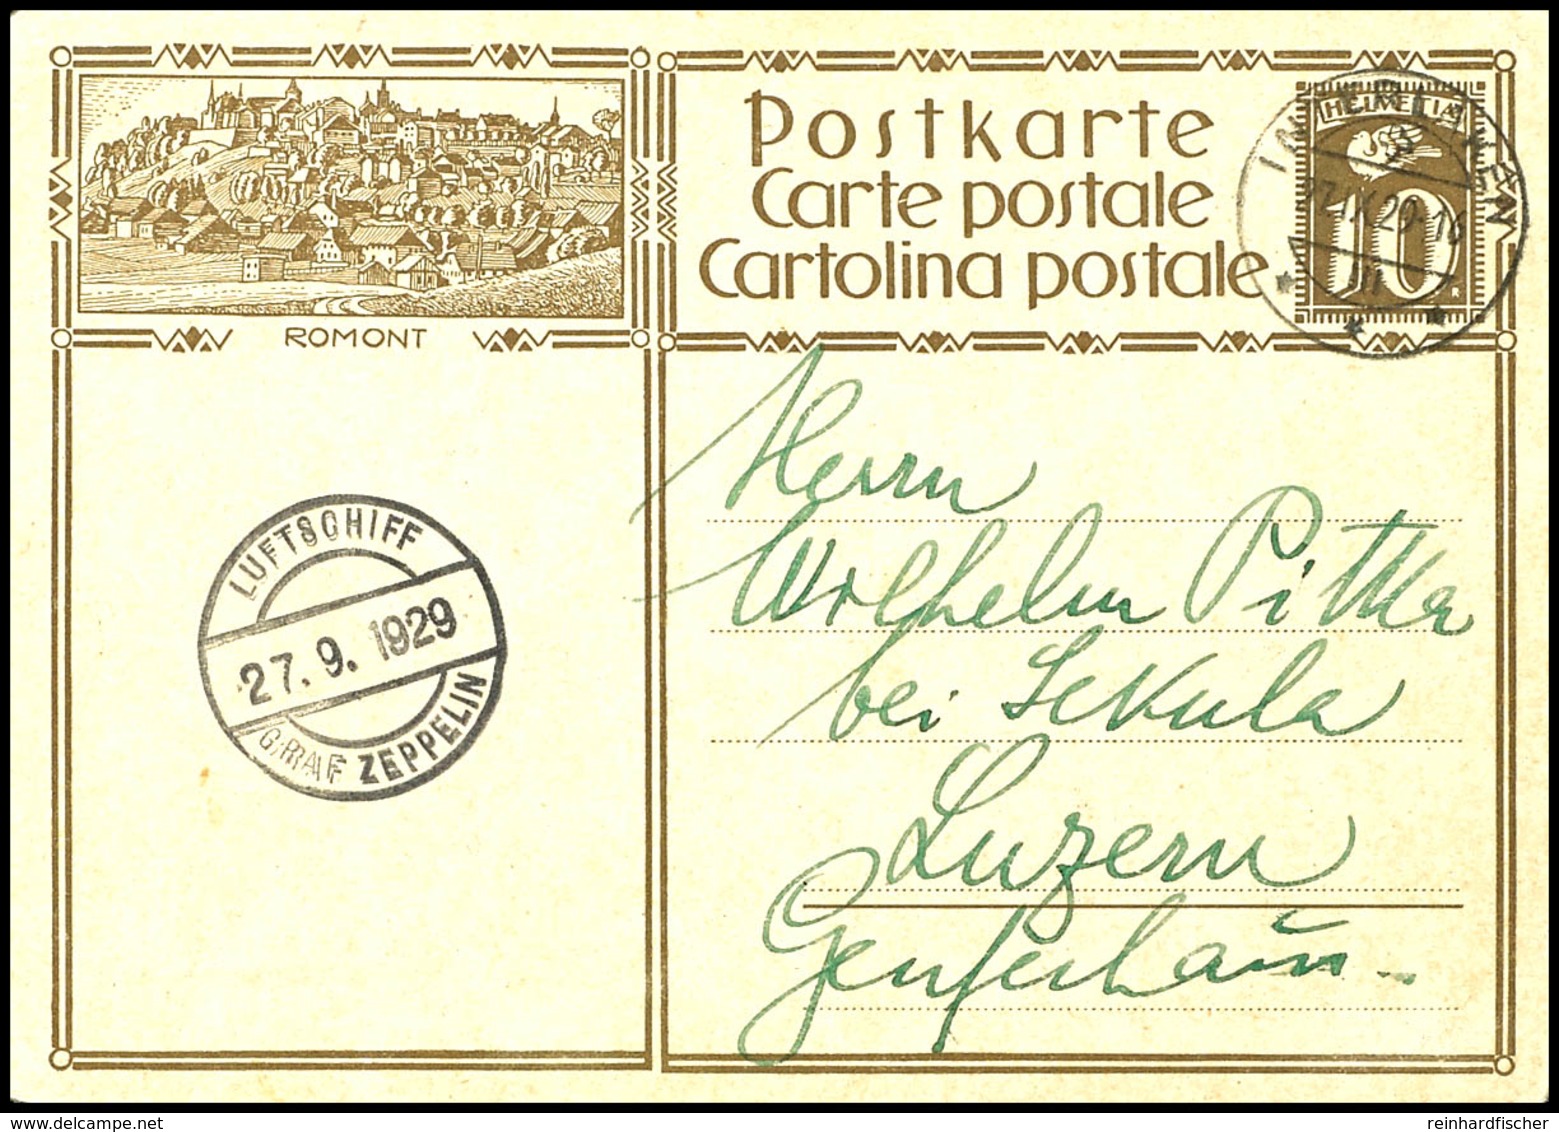 Postkarte
Carte postale
Cartolina postale
HELVETIA
10
INTERLAKEN
27.IX.29-16
ROMONT
Herrn
Wilhelm Pitka
bei Sekula
Luzern
Genferhaus.
LUFTSCHIFF
27.9.1929
GRAF ZEPPELIN
delcampe.net
reinhardfischer